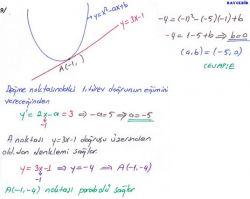 BAYBERİR
9/
y=x²-ax+b
y=3x-1
A(-1, )
-4=(-1)²-(-5)(-1)+b
-4=1-5+b ⇒ b=0
(a,b)=(-5,0)
CEVAP: C
Değme noktasındaki 1.türev doğrunun eğimini
vereceğinden
y'=2x-a=3 ⇒ -a=5 ⇒ a=-5
-1
A noktası y=3x-1 doğrusu üzerinden
old.dan denklemi sağlar
y=3x-1 ⇒ y=-4 ⇒ A(-1,-4)
-1
A(-1,-4) noktası parabolü sağlar